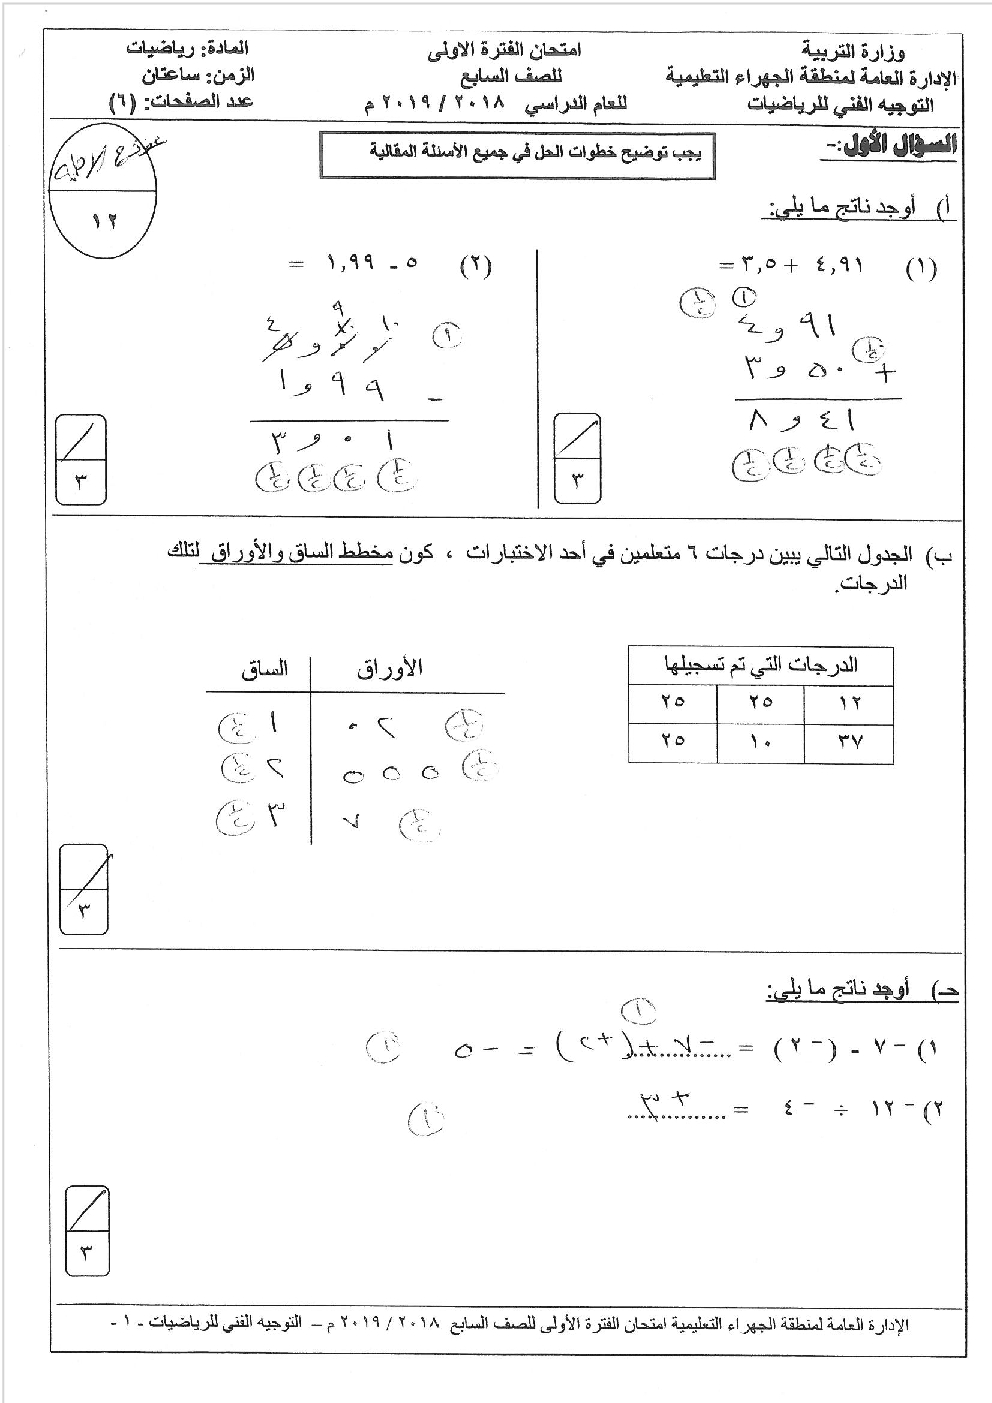 وزارة التربية
الإدارة العامة لمنطقة الجهراء التعليمية
التوجيه الفني للرياضيات
امتحان الفترة الاولى
للصف السابع
للعام الدراسي ٢٠١٨ / ٢٠١٩ م
المادة: رياضيات
الزمن: ساعتان
عدد الصفحات: (٦)
السؤال الأول:-
يجب توضيح خطوات الحل في جميع الأسئلة المقالية
١٢
أ) أوجد ناتج ما يلي:
(١) ٤,٩١ + ٣,٥ =
١ ١/٢
٤ و ٩١
١/٢
+ ٣ و ٥٠
٨ و ٤١
١/٢ ١/٢ ١/٢ ١/٢
٣
(٢) ٥ - ١,٩٩ =
٤ ٩ ١٠
١
- ١ و ٩ ٩
٣ و ٠ ١
١/٢ ١/٢ ١/٢ ١/٢
٣
ب) الجدول التالي يبين درجات ٦ متعلمين في أحد الاختبارات ، كون مخطط الساق والأوراق لتلك
الدرجات.
الدرجات التي تم تسجيلها
١٢ ٢٥ ٢٥
٣٧ ١٠ ٢٥
الساق الأوراق
١/٢ ١ ٠ ٢ ١/٢
١/٢ ٢ ٥ ٥ ٥ ١/٢
١/٢ ٣ ٧ ١/٢
٣
حـ) أوجد ناتج ما يلي:
١
١) -٧ - (-٢) = -٧ + (+٢) = -٥ ١
٢) -١٢ ÷ -٤ = +٣ ١
٣
الإدارة العامة لمنطقة الجهراء التعليمية امتحان الفترة الأولى للصف السابع ٢٠١٨ / ٢٠١٩ م – التوجيه الفني للرياضيات - ١ -